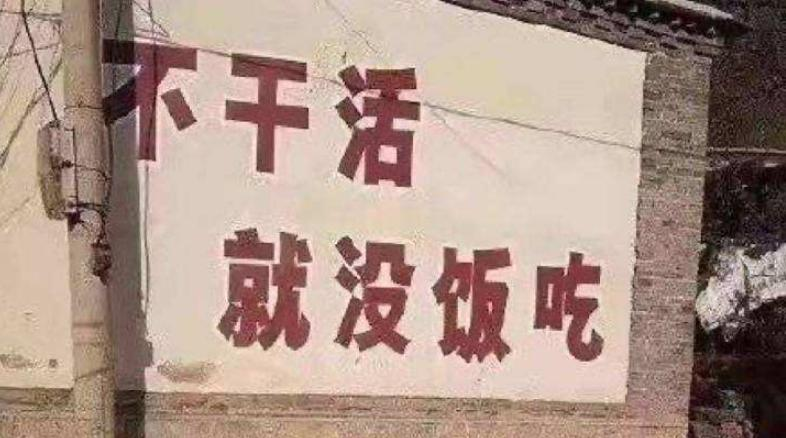 不干活
就没饭吃